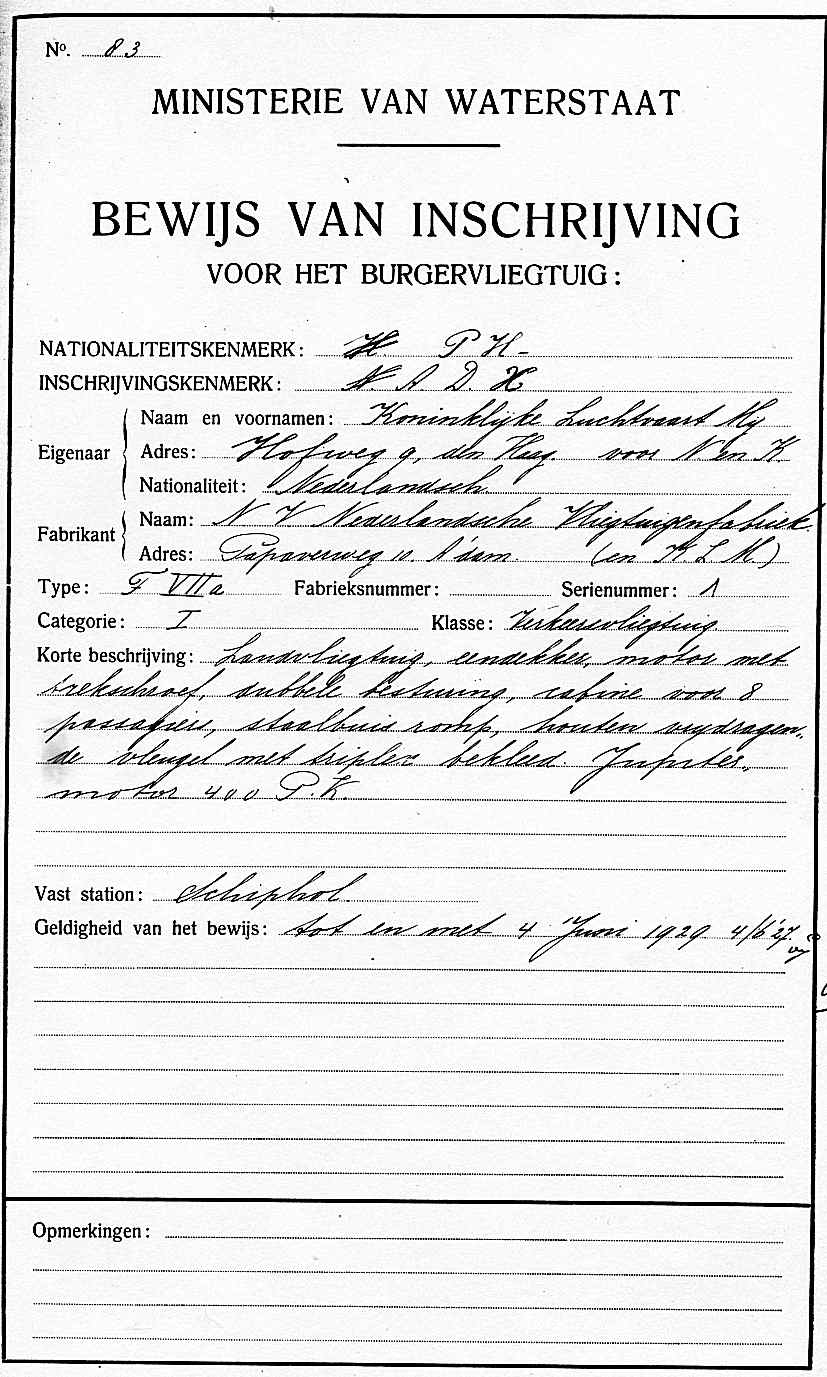 No. 83
MINISTERIE VAN WATERSTAAT
BEWIJS VAN INSCHRIJVING
VOOR HET BURGERVLIEGTUIG:
NATIONALITEITSKENMERK: H P H-
INSCHRIJVINGSKENMERK: N A D X
Eigenaar
Naam en voornamen: Koninklijke Luchtvaart Mij
Adres: Hofweg 9, den Haag. voor N en K.
Nationaliteit: Nederlandsch
Fabrikant
Naam: N V Nederlandsche Vliegtuigenfabriek.
Adres: Papaverweg 10. A'dam. (en K L M.)
Type: F VIIa Fabrieksnummer: Serienummer: 1
Categorie: I Klasse: Verkeersvliegtuig.
Korte beschrijving: Landvliegtuig, eendekker, motor met
trekschroef, dubbele besturing, cabine voor 8
passagiers, staalbuis romp, houten vrijdragen„
de vleugel met triplex bekleed. Jupiter„
motor 400 P.K.
Vast station: Schiphol.
Geldigheid van het bewijs: tot en met 4 Juni 1929 4/6'27.
Opmerkingen: